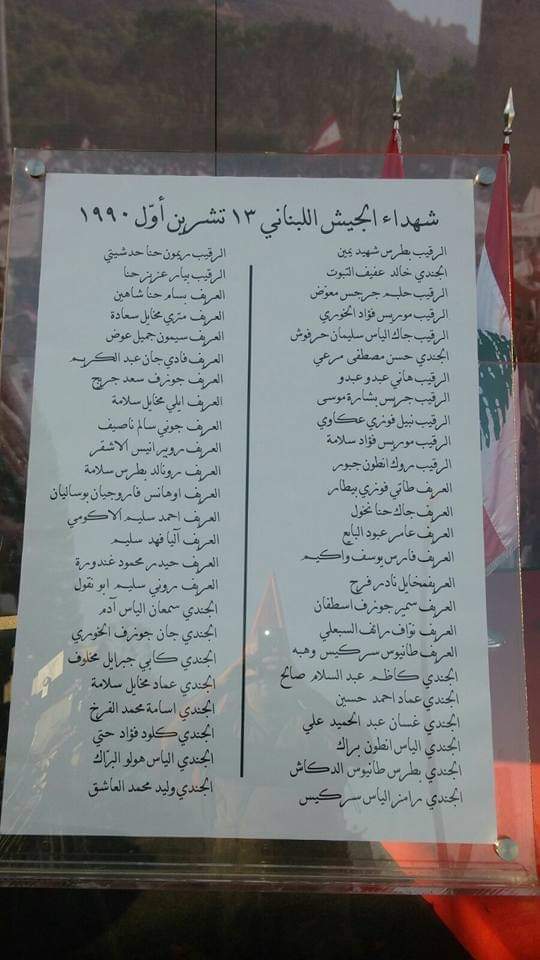 شهداء الجيش اللبناني ١٣ تشرين أوّل ١٩٩٠
الرقيب بطرس شهيد يمين
الجندي خالد عفيف التبوت
الرقيب حليم جرجس معوّض
الرقيب موريس فؤاد الخوري
الرقيب جاك الياس سليمان حرفوش
الجندي حسن مصطفى مرعي
الرقيب هاني عبدو عبدو
الرقيب جريس بشارة موسى
الرقيب نبيل فوزي عكاوي
الرقيب موريس فؤاد سلامة
الرقيب روك انطون جبور
العريف طاني فوزي بيطار
العريف جاك حنا نخول
العريف عامر عبود البايع
العريف فارس يوسف واكيم
العريفمخايل نادر فرج
العريف سمير جوزف اسطفان
العريف نوّاف رائف السبعلي
العريف طانيوس سركيس وهبه
الجندي كاظم عبد السلام صالح
الجندي عماد احمد حسين
الجندي غسان عبد الحميد علي
الجندي الياس انطون براك
الجندي بطرس طانيوس الدكاش
الجندي رامز الياس سركيس
الرقيب ريمون حنا حدشيتي
الرقيب بيار عزيز حنا
العريف بسام حنا شاهين
العريف متري مخايل سعادة
العريف سيمون جميل عوض
العريف فادي جان عبد الكريم
العريف جوزف سعد جريج
العريف ايلي مخايل سلامة
العريف جوني سالم ناصيف
العريف روبير انيس الاشقر
العريف رونالد بطرس سلامة
العريف اوهانس فاروجيان بوساليان
العريف احمد سليم الاكومي
العريف آليا فهد سليم
العريف حيدر محمود غندورة
العريف روني سليم ابو نقول
الجندي سمعان الياس آدم
الجندي جان جوزف الخوري
الجندي كابي جبرايل مخلوف
الجندي عماد مخايل سلامة
الجندي اسامة محمد الفرخ
الجندي كلود فؤاد حتي
الجندي الياس هولو البرّاك
الجندي وليد محمد العاشق